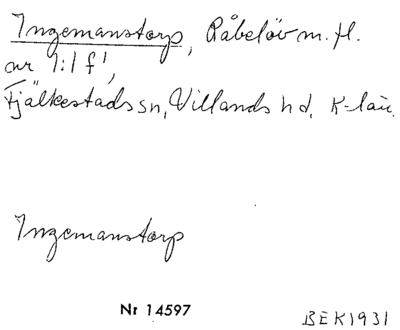 Ingemanstorp, Råbelöv m. fl.
nr 1:1 f¹,
Fjälkestads sn, Villands hd, K-län.
Ingemanstorp
Nr 14597
BEK 1931